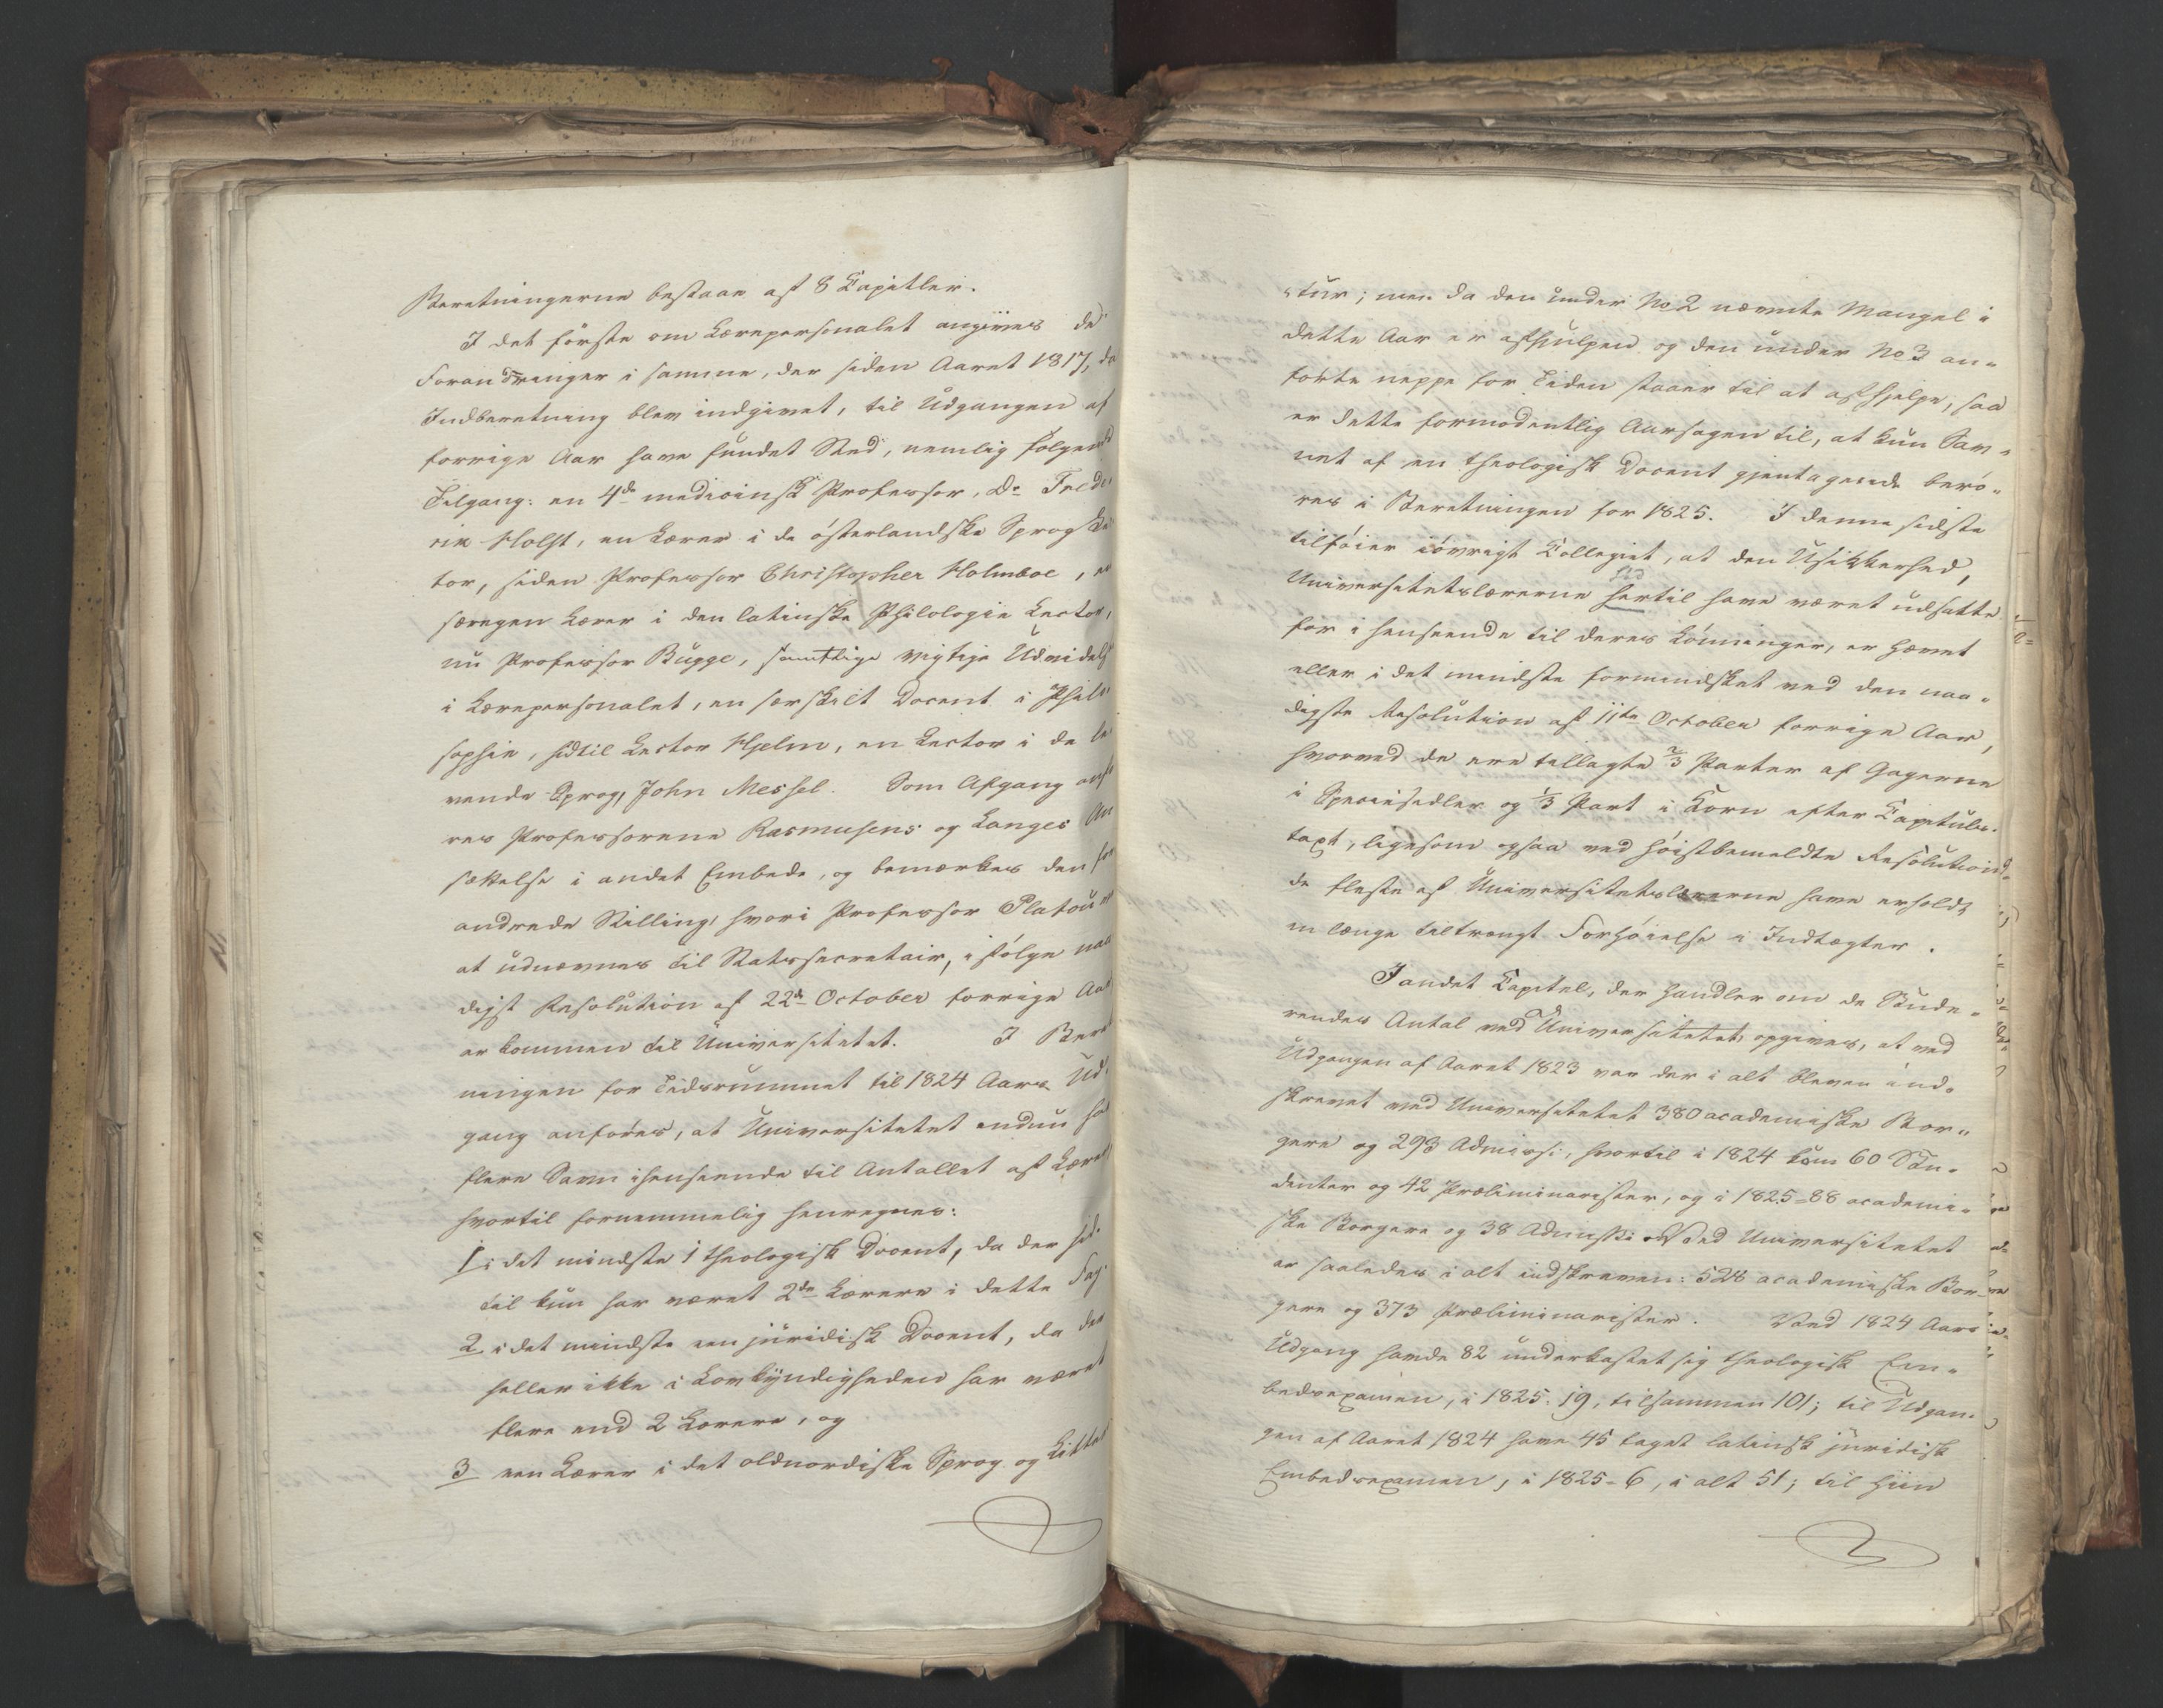 Beretningerne bestaae af 8 Capitler.
I det første om Lærepersonalet angives de
Forandringer i samme, der siden Aaret 1817, da
Indberetning blev indgivet, til Udgangen af
forrige Aar have fundet Sted, nemlig følgende
Tilgang: en 4de medicinsk Professor, Dr Frede¬
rik Holst, en Lærer i de østerlandske Sprog Lec¬
tor, siden Professor Christopher Holmboe, en
særegen Lærer i den latinske Philologie Lector,
nu Professor Bugge, samtlige vigtige Udvidelser
i Lærepersonalet, en særskilt Docent i Philo¬
sophie, hidtil Lector Hjelm, en Lector i de le¬
vende Sprog, John Messel. Som Afgang anfø¬
res Professorene Rasmusens og Langes An¬
sættelse i andet Embede, og bemærkes den for¬
andrede Stilling, hvori Professor Platou ved
at udnævnes til Statssecretair, i følge naa¬
digst Resolution af 22de October forrige Aar
er kommen til Universitetet. I Beret¬
ningen for Tidsrummet til 1824 Aars Ud¬
gang anføres, at Universitetet endnu har
flere Savn i henseende til Antallet af Lærere
hvortil fornemmelig henregnes:
1, i det mindste 1 theologisk Docent, da der hid¬
til kun har været 2de Lærere i dette Fag.
2 i det mindste een juridisk Docent, da der
heller ikke i Lovkyndigheden har været
flere end 2 Lærere, og
3 een Lærer i det oldnordiske Sprog og Litte¬
ratur; men da den under No 2 nævnte Mangel i
dette Aar er afhjulpen og den under No 3 an¬
førte neppe for Tiden staaer til at afhjelpe, saa
er dette formodentlig Aarsagen til, at kun Sav¬
net af en theologisk Docent gjentagende berø¬
res i Beretningen for 1825. I denne sidste
tilføier iøvrigt Collegiet, at den Usikkerhed,
Universitetslærerne hertil have været udsatte
hid
for i henseende til deres Lønninger, er hævet
eller i det mindste formindsket ved den naa¬
digste Resolution af 11te October forrige Aar,
hvorved de ere tillagte 2/3 Parter af Gagerne
i Speciesedler og 1/3 Part i Korn efter Capituls¬
taxt, ligesom ogsaa ved høistbemeldte Resolution
de fleste af Universitetslærerne have erholdt
en længe tiltrængt Forhøielse i Indtægter.
I andet Capitel, der handler om de Stude¬
rendes Antal ved Universitetet, opgives, at ved
Udgangen af Aaret 1823 var der i alt bleven ind¬
skrevet ved Universitetet 380 academiske Bor¬
gere og 293 Admissi, hvortil i 1824 kom 60 Stu¬
denter og 42 Præliminarister, og i 1825 - 88 academi¬
ske Borgere og 38 Admissi. Ved Universitetet
er saaledes i alt indskreven: 528 academiske Bor¬
gere og 373 Præliminarister. Ved 1824 Aars
Udgang havde 82 underkastet sig theologisk Em¬
bedsexamen, i 1825: 19, tilsammen 101; til Udgan¬
gen af Aaret 1824 have 45 taget latinsk juridisk
Embedsexamen, i 1825 - 6, i alt 51; til hiin